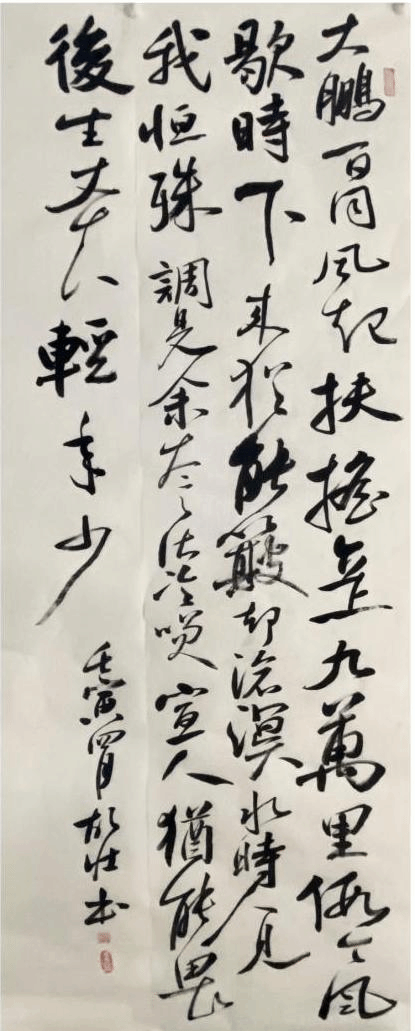 大鵬一日同風起扶搖直上九萬里假令風
歇時下來猶能簸却滄溟水時人見
我恒殊調見余大言皆冷笑宣父猶能畏
後生丈夫未可輕年少
壬寅四月胡壯书